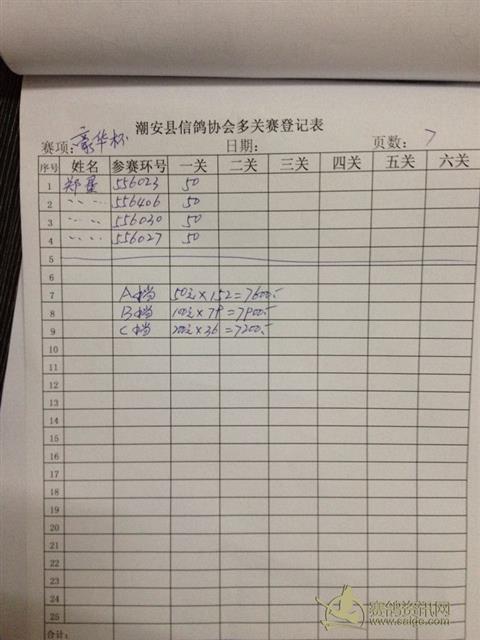 潮安县信鸽协会多关赛登记表
赛项:豪华杯 日期: 页数:7
序号 姓名 参赛环号 一关 二关 三关 四关 五关 六关
1 郑星 556023 50
2 〃 〃 556406 50
3 〃 〃 556030 50
4 〃 〃 556027 50
5
6
7 A档 50元×152=7600.-
8 B档 100元×79=7900.-
9 C档 200元×36=7200.-
10
11
12
13
14
15
16
17
18
19
20
21
22
23
24
25
合计:
赛鸽资讯网
www.saige.com